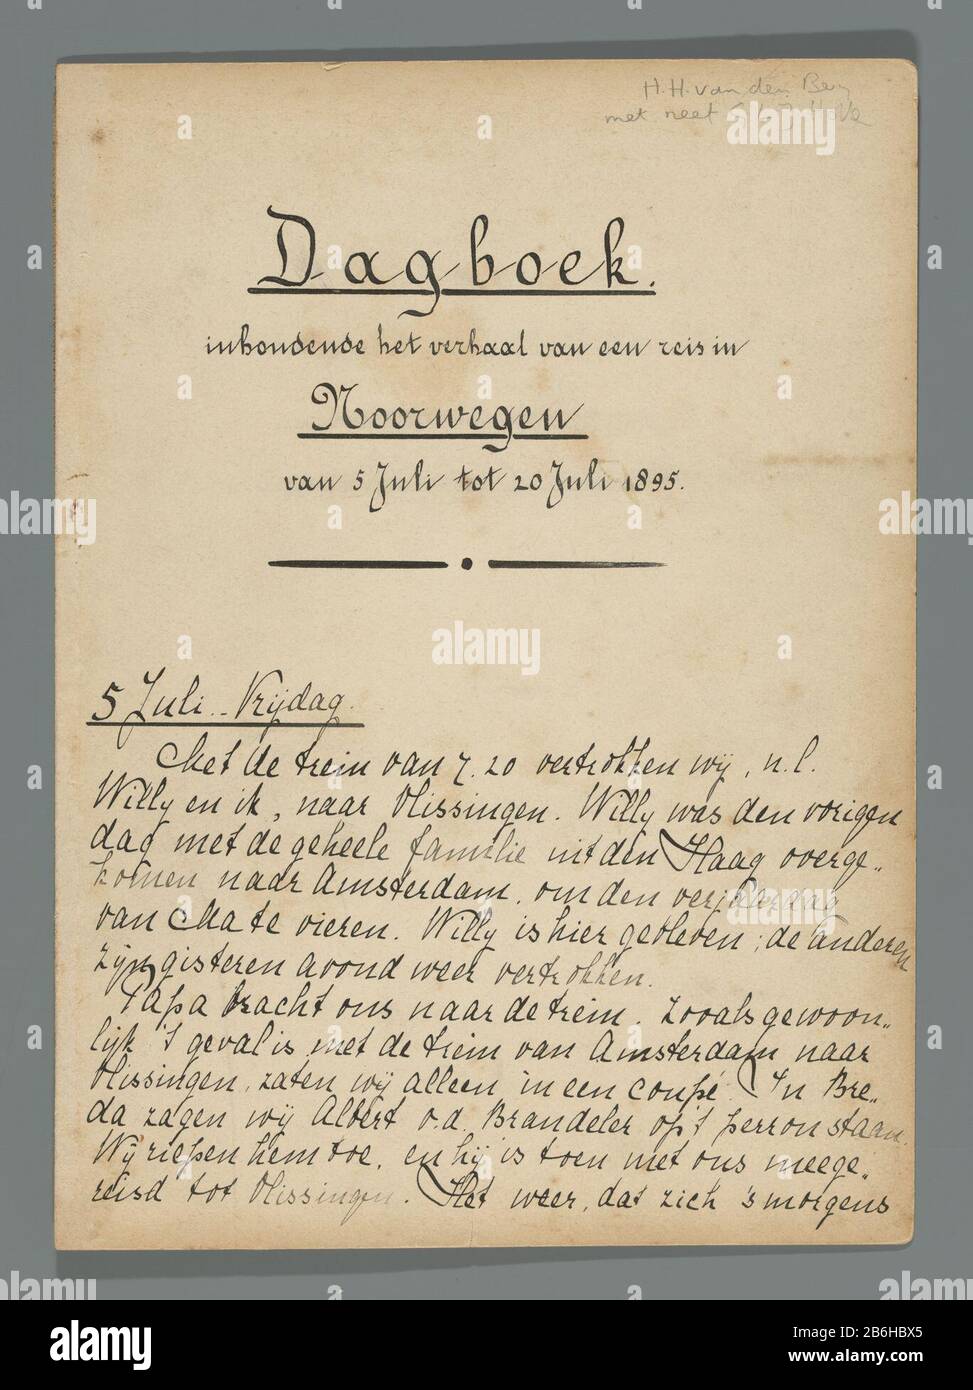 H.H. van den Berg
met neef
Dagboek.
inhoudende het verhaal van een reis in
Noorwegen
van 5 Juli tot 20 Juli 1895.
5 Juli.. Vrijdag.
Met de trein van 7.20 vertrokken wij, n.l.
Willy en ik, naar Vlissingen. Willy was den vorigen
dag met de geheele familie uit den Haag overge„
komen naar Amsterdam, om den verjaardag
van Ma te vieren. Willy is hier gebleven; de anderen
zijn gisteren avond weer vertrokken.
Papa bracht ons naar de trein. Zooals gewoon„
lijk 't geval is met de trein van Amsterdam naar
Vlissingen, zaten wij alleen in een coupé. In Bre„
da zagen wij Albert v.d. Brandeler op 't perron staan.
Wij riepen hem toe, en hij is toen met ons meege„
reisd tot Vlissingen. Het weer, dat zich 's morgens
alamy
Image ID: 2B6HBX5
www.alamy.com